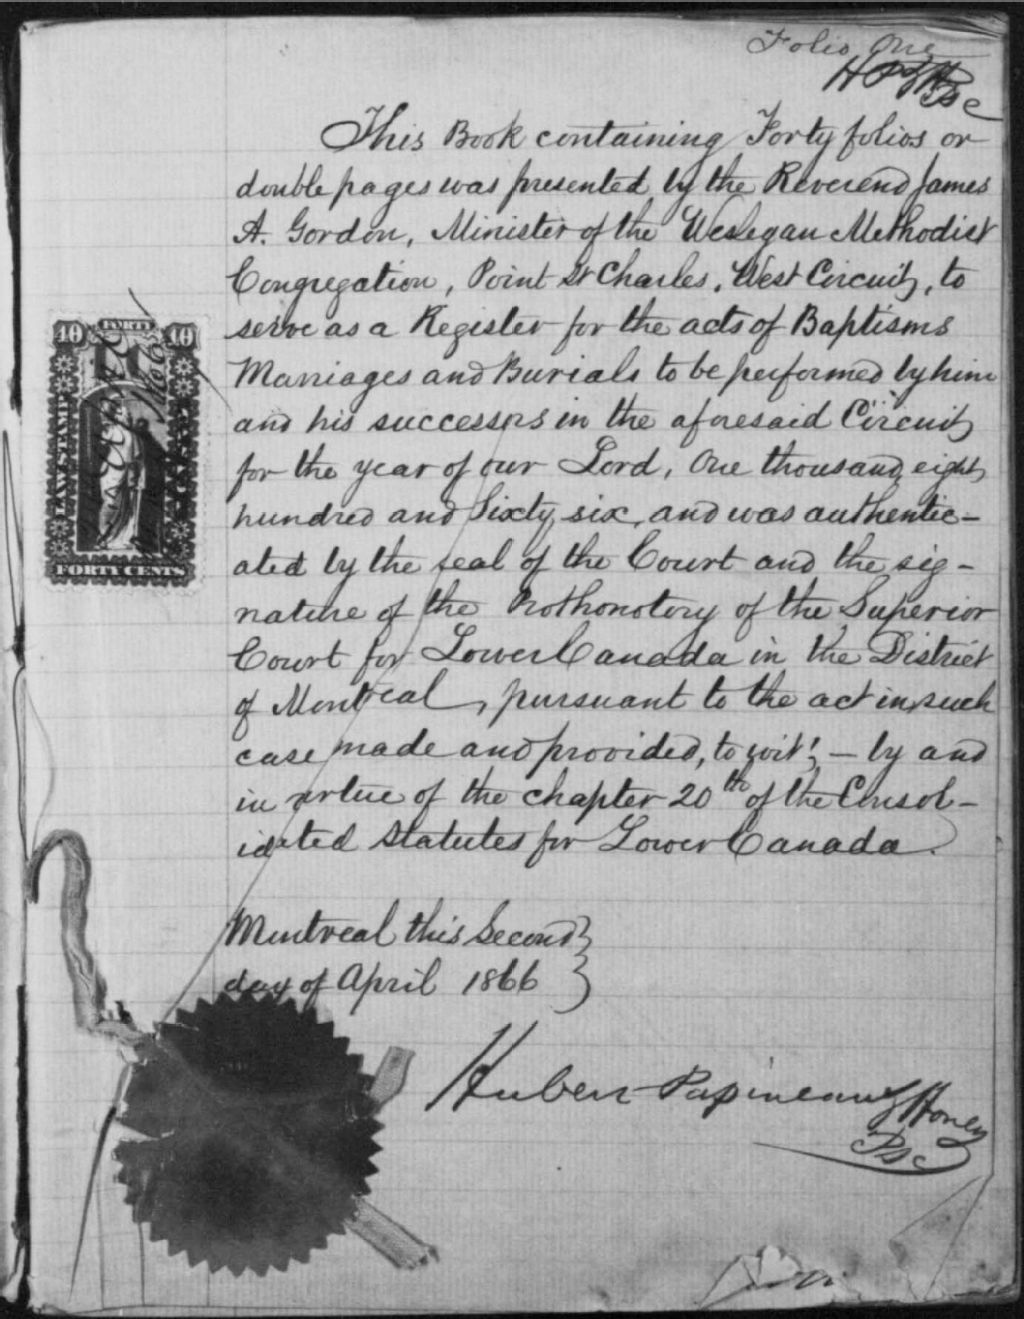 Folio One
HP & H
Psc
This Book containing Forty folios or
double pages was presented by the Reverend James
A. Gordon, Minister of the Weslegan Methodist
Congregation, Point St Charles, West Circuit, to
serve as a Register for the acts of Baptisms
Marriages and Burials to be performed by him
and his successors in the aforesaid Circuit
for the year of our Lord, One thousand eight
hundred and Sixty six, and was authentic-
ated by the seal of the Court and the sig-
nature of the Prothonotory of the Superior
Court for Lower Canada in the District
of Montreal, pursuant to the act in such
case made and provided, to wit; - by and
in virtue of the chapter 20th of the Consol-
idated Statutes for Lower Canada.
40 FORTY 40
LAW STAMP
L. CANADA
FORTY CENTS
Montreal this Second
day of April 1866
Hubert Papineau & Honey
Psc